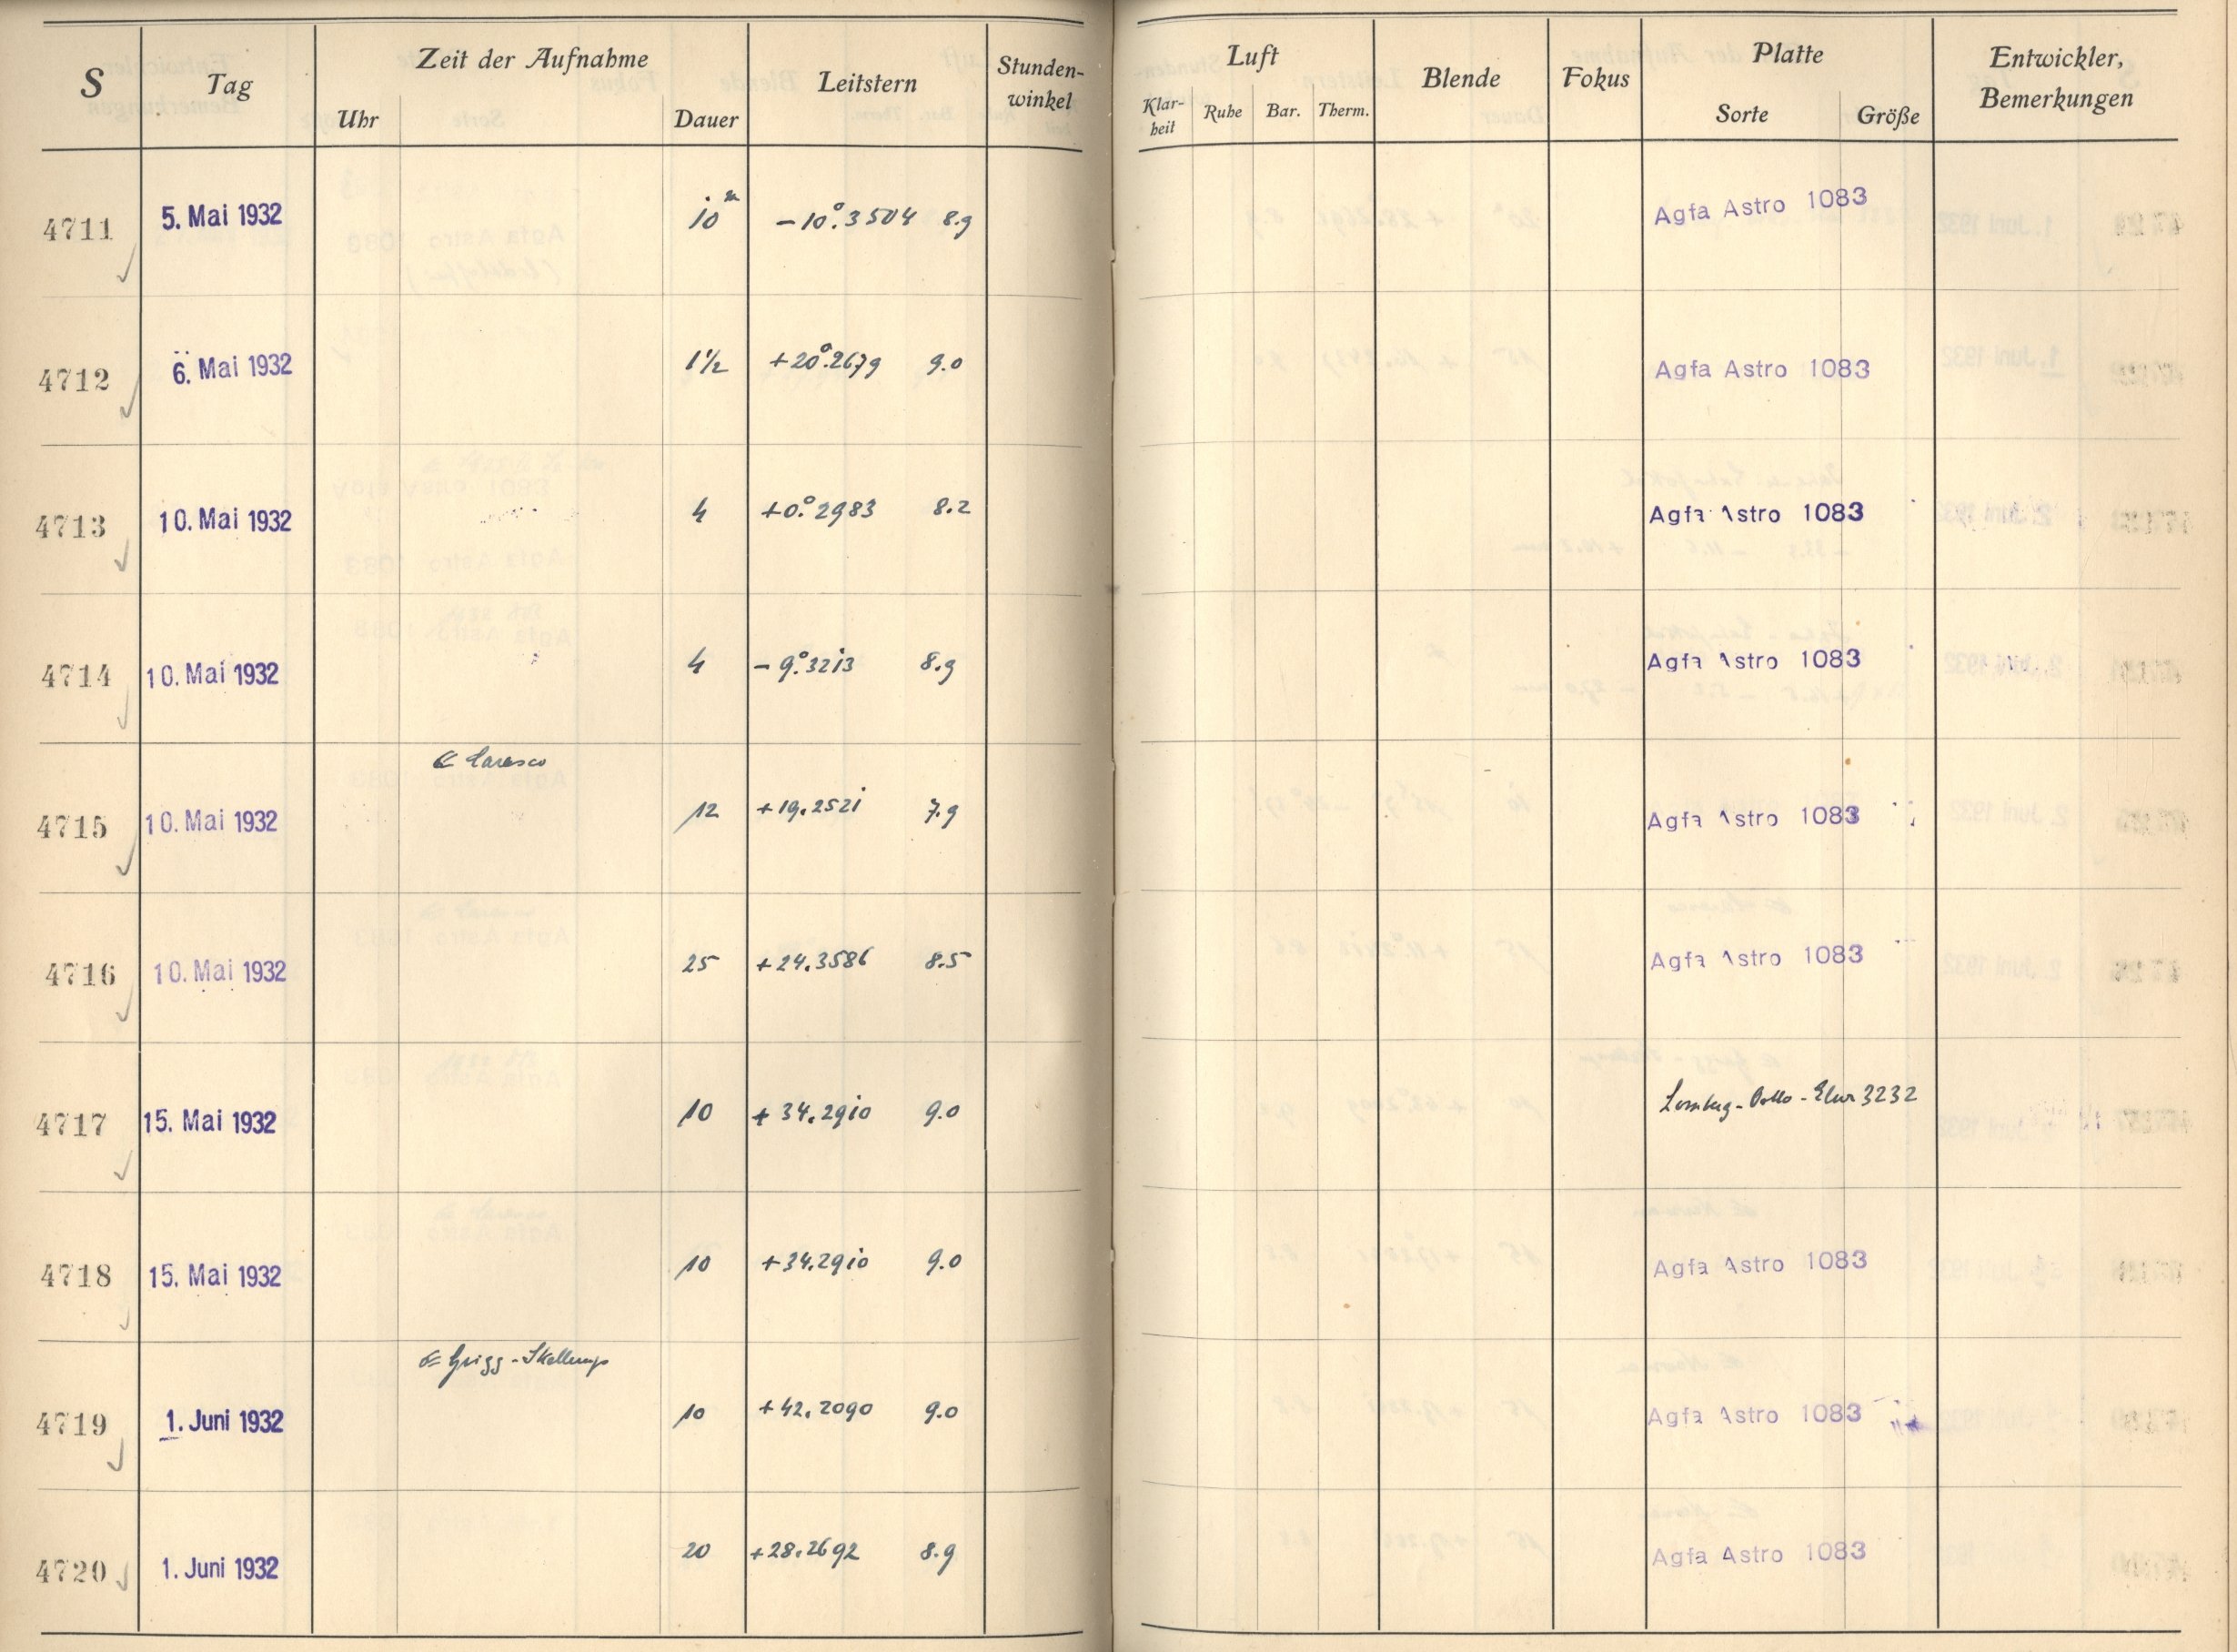 S Tag Zeit der Aufnahme Leitstern Stunden-winkel Luft Blende Fokus Platte Entwickler, Bemerkungen
Uhr Dauer Klar-heit Ruhe Bar. Therm. Sorte Größe
4711 5. Mai 1932 10m −10°.3504 8.9 Agfa Astro 1083
4712 6. Mai 1932 1½ +20°.2679 9.0 Agfa Astro 1083
4713 10. Mai 1932 4 +0°.2983 8.2 Agfa Astro 1083
4714 10. Mai 1932 4 −9°.3213 8.9 Agfa Astro 1083
Carasco
4715 10. Mai 1932 12 +19.2521 7.9 Agfa Astro 1083
4716 10. Mai 1932 25 +24.3586 8.5 Agfa Astro 1083
4717 15. Mai 1932 10 +34.2910 9.0 3232
4718 15. Mai 1932 10 +34.2910 9.0 Agfa Astro 1083
Grigg-Skellerup
4719 1. Juni 1932 10 +42.2090 9.0 Agfa Astro 1083
4720 1. Juni 1932 20 +28.2692 8.9 Agfa Astro 1083